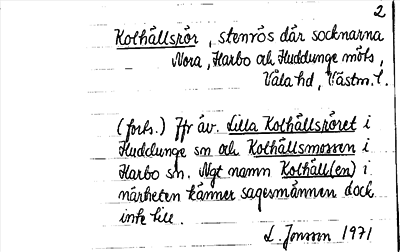 2
Kolhållsrör, stenrös där socknarna
Nora, Harbo och Huddunge möts,
Våla hd, Västm. l.
(forts.) Jfr äv. Lilla Kolhållsröret i
Huddunge sn och Kolhållsmossen i
Harbo sn. Ngt namn Kolhåll(en) i
närheten känner sagesmannen dock
inte till.
L. Jonson 1971